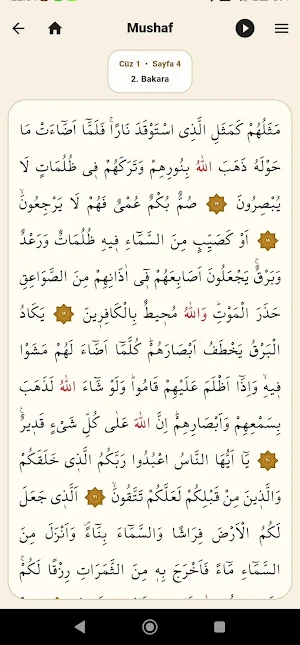 Mushaf
Cüz 1 • Sayfa 4
2. Bakara
مَثَلُهُمْ كَمَثَلِ الَّذِى اسْتَوْقَدَ نَارًاۚ فَلَمَّٓا اَضَٓاءَتْ مَا
حَوْلَهُ ذَهَبَ اللّٰهُ بِنُورِهِمْ وَتَرَكَهُمْ فِى ظُلُمَاتٍ لَا
يُبْصِرُونَ ﴿١٧﴾ صُمٌّ بُكْمٌ عُمْىٌ فَهُمْ لَا يَرْجِعُونَۙ
﴿١٨﴾ اَوْ كَصَيِّبٍ مِنَ السَّمَٓاءِ فِيهِ ظُلُمَاتٌ وَرَعْدٌ
وَبَرْقٌۚ يَجْعَلُونَ اَصَابِعَهُمْ فٓى اٰذَانِهِمْ مِنَ الصَّوَاعِقِ
حَذَرَ الْمَوْتِۜ وَاللّٰهُ مُحِيطٌ بِالْكَافِرِينَ ﴿١٩﴾ يَكَادُ
الْبَرْقُ يَخْطَفُ اَبْصَارَهُمْۜ كُلَّمَٓا اَضَٓاءَ لَهُمْ مَشَوْا
فِيهِۙ وَاِذَٓا اَظْلَمَ عَلَيْهِمْ قَامُواۜ وَلَوْ شَٓاءَ اللّٰهُ لَذَهَبَ
بِسَمْعِهِمْ وَاَبْصَارِهِمْۜ اِنَّ اللّٰهَ عَلٰى كُلِّ شَىْءٍ قَدِيرٌ۟
﴿٢٠﴾ يَٓا اَيُّهَا النَّاسُ اعْبُدُوا رَبَّكُمُ الَّذِى خَلَقَكُمْ
وَالَّذِينَ مِنْ قَبْلِكُمْ لَعَلَّكُمْ تَتَّقُونَۙ ﴿٢١﴾ اَلَّذِى جَعَلَ
لَكُمُ الْاَرْضَ فِرَاشًا وَالسَّمَٓاءَ بِنَٓاءًۖ وَاَنْزَلَ مِنَ
السَّمَٓاءِ مَٓاءً فَاَخْرَجَ بِهِ مِنَ الثَّمَرَاتِ رِزْقًا لَكُمْۚ